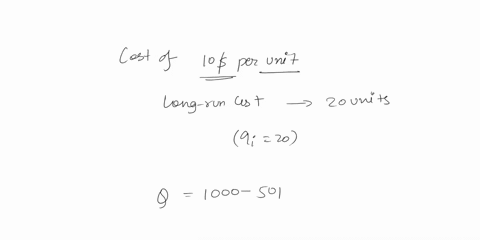 Cost of 10$ per unit
Long-run cost → 20 units
(qi = 20)
Q = 1000-501